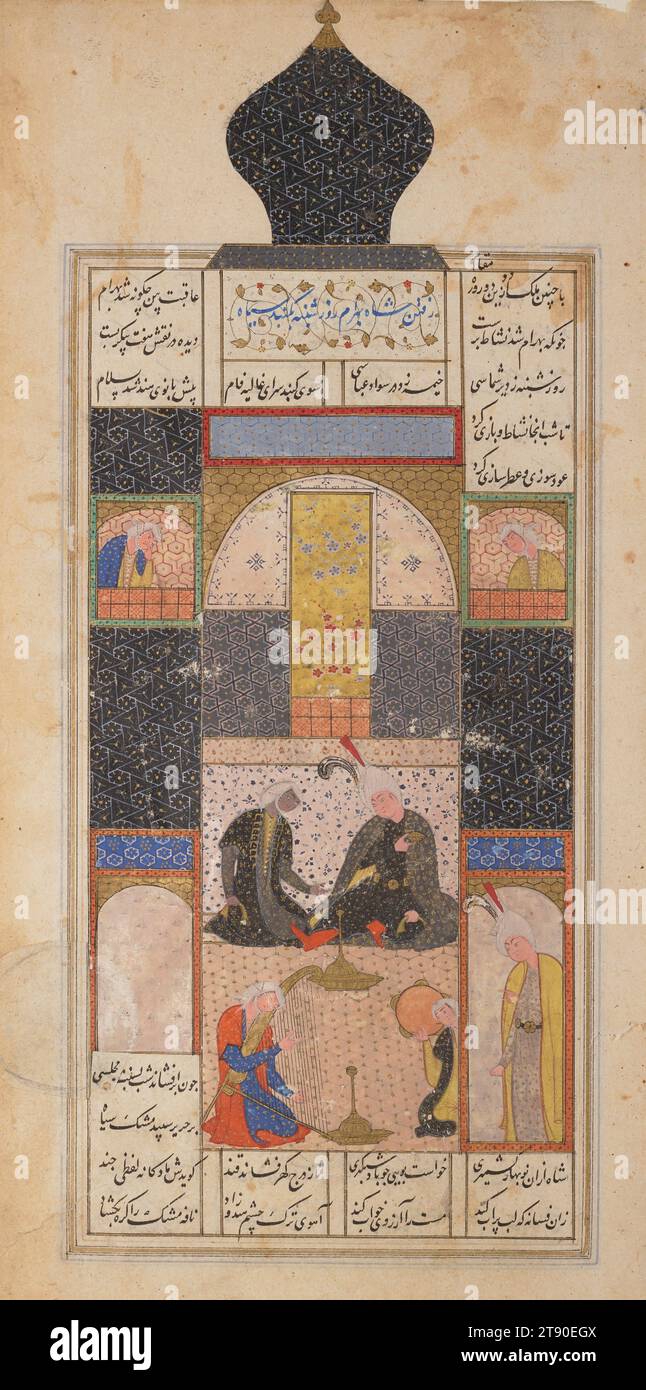 رفتن شاه بهرام روز شنبه بگنبد سیاه
با چنین ملک ازین دو روزه مقام
عاقبت بین چگونه شد بهرام
چونکه بهرام شد نشاط پرست
دیده در نقش هفت پیکر بست
روز شنبه ز دیر شماسی
خیمه زد در سواد عباسی
سوی گنبد سرای غالیه فام
پیش بانوی هند شد بسلام
تا شب آنجا نشاط و بازی کرد
عود سوزی و عطرسازی کرد
چون برافشاند شب بسنت
بر حریر سپید مشک سیاه
شاه ازان نوبهار کشمیری
خواست بویی چو باد شبگیری
تا ز درج گهر فشاند قند
گویدش مادگانه لفظی چند
زان فسانه که لب پر آب کند
مست را آرزوی خواب کند
آهوی ترک چشم هندو زاد
نافه مشک را گره بگشاد
alamy
Image ID: 2T90EGX
www.alamy.com